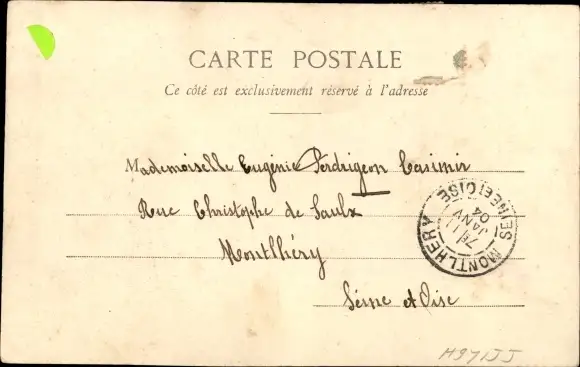 CARTE POSTALE
Ce côté est exclusivement réservé à l'adresse
Mademoiselle Eugénie Perdrigeon Casimir
Rue Christophe de Saulx
Montlhéry
Seine et Oise
MONTLHERY
SEINE ET OISE
11
JANV
04